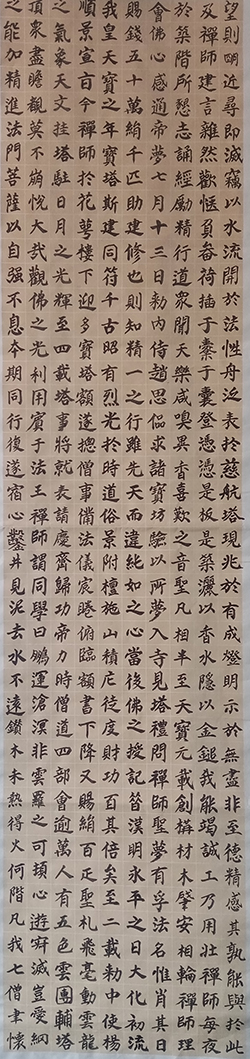 望則明近尋即滅竊以水流開於法性舟泛表於慈航塔現兆於有成燈明示於無盡非至德精感其孰能與於此
及禪師建言雜然歡愜負畚荷插于橐于囊登憑憑是板是築灑以香水隱以金鎚我能竭誠工乃用壯禪師每夜
於築階所懇志誦經勵精行道眾聞天樂咸嗅異香喜歎之音聖凡相半至天寶元載創構材木肇安相輪禪師理
會佛心感通帝夢七月十三日勑內侍趙思偘求諸寶坊驗以所夢入寺見塔禮問禪師聖夢有孚法名惟肖其日
賜錢五十萬絹千匹助建修也則知精一之行雖先天而違純如之心當後佛之授記昔漢明永平之日大化初流
我皇天寶之年寶塔斯建同符千古昭有烈光於時道俗景附檀施山積庀徒度財功百其倍矣至二載勑中使楊
順景宣旨令禪師於花萼樓下迎多寶塔額遂揔僧事備法儀宸睠俯臨額書下降又賜絹百疋聖札飛毫動雲龍
之氣象天文挂塔駐日月之光輝至四載塔事將就表請慶齋歸功帝力時僧道四部會逾萬人有五色雲團輔塔
頂眾盡瞻覩莫不崩悅大哉觀佛之光利用賓于法王禪師謂同學曰鵬運滄溟非雲羅之可頓心遊寂滅豈愛網
之能加精進法門菩薩以自强不息本期同行復遂宿心鑿井見泥去水不遠鑽木未熱得火何階凡我七僧聿懷